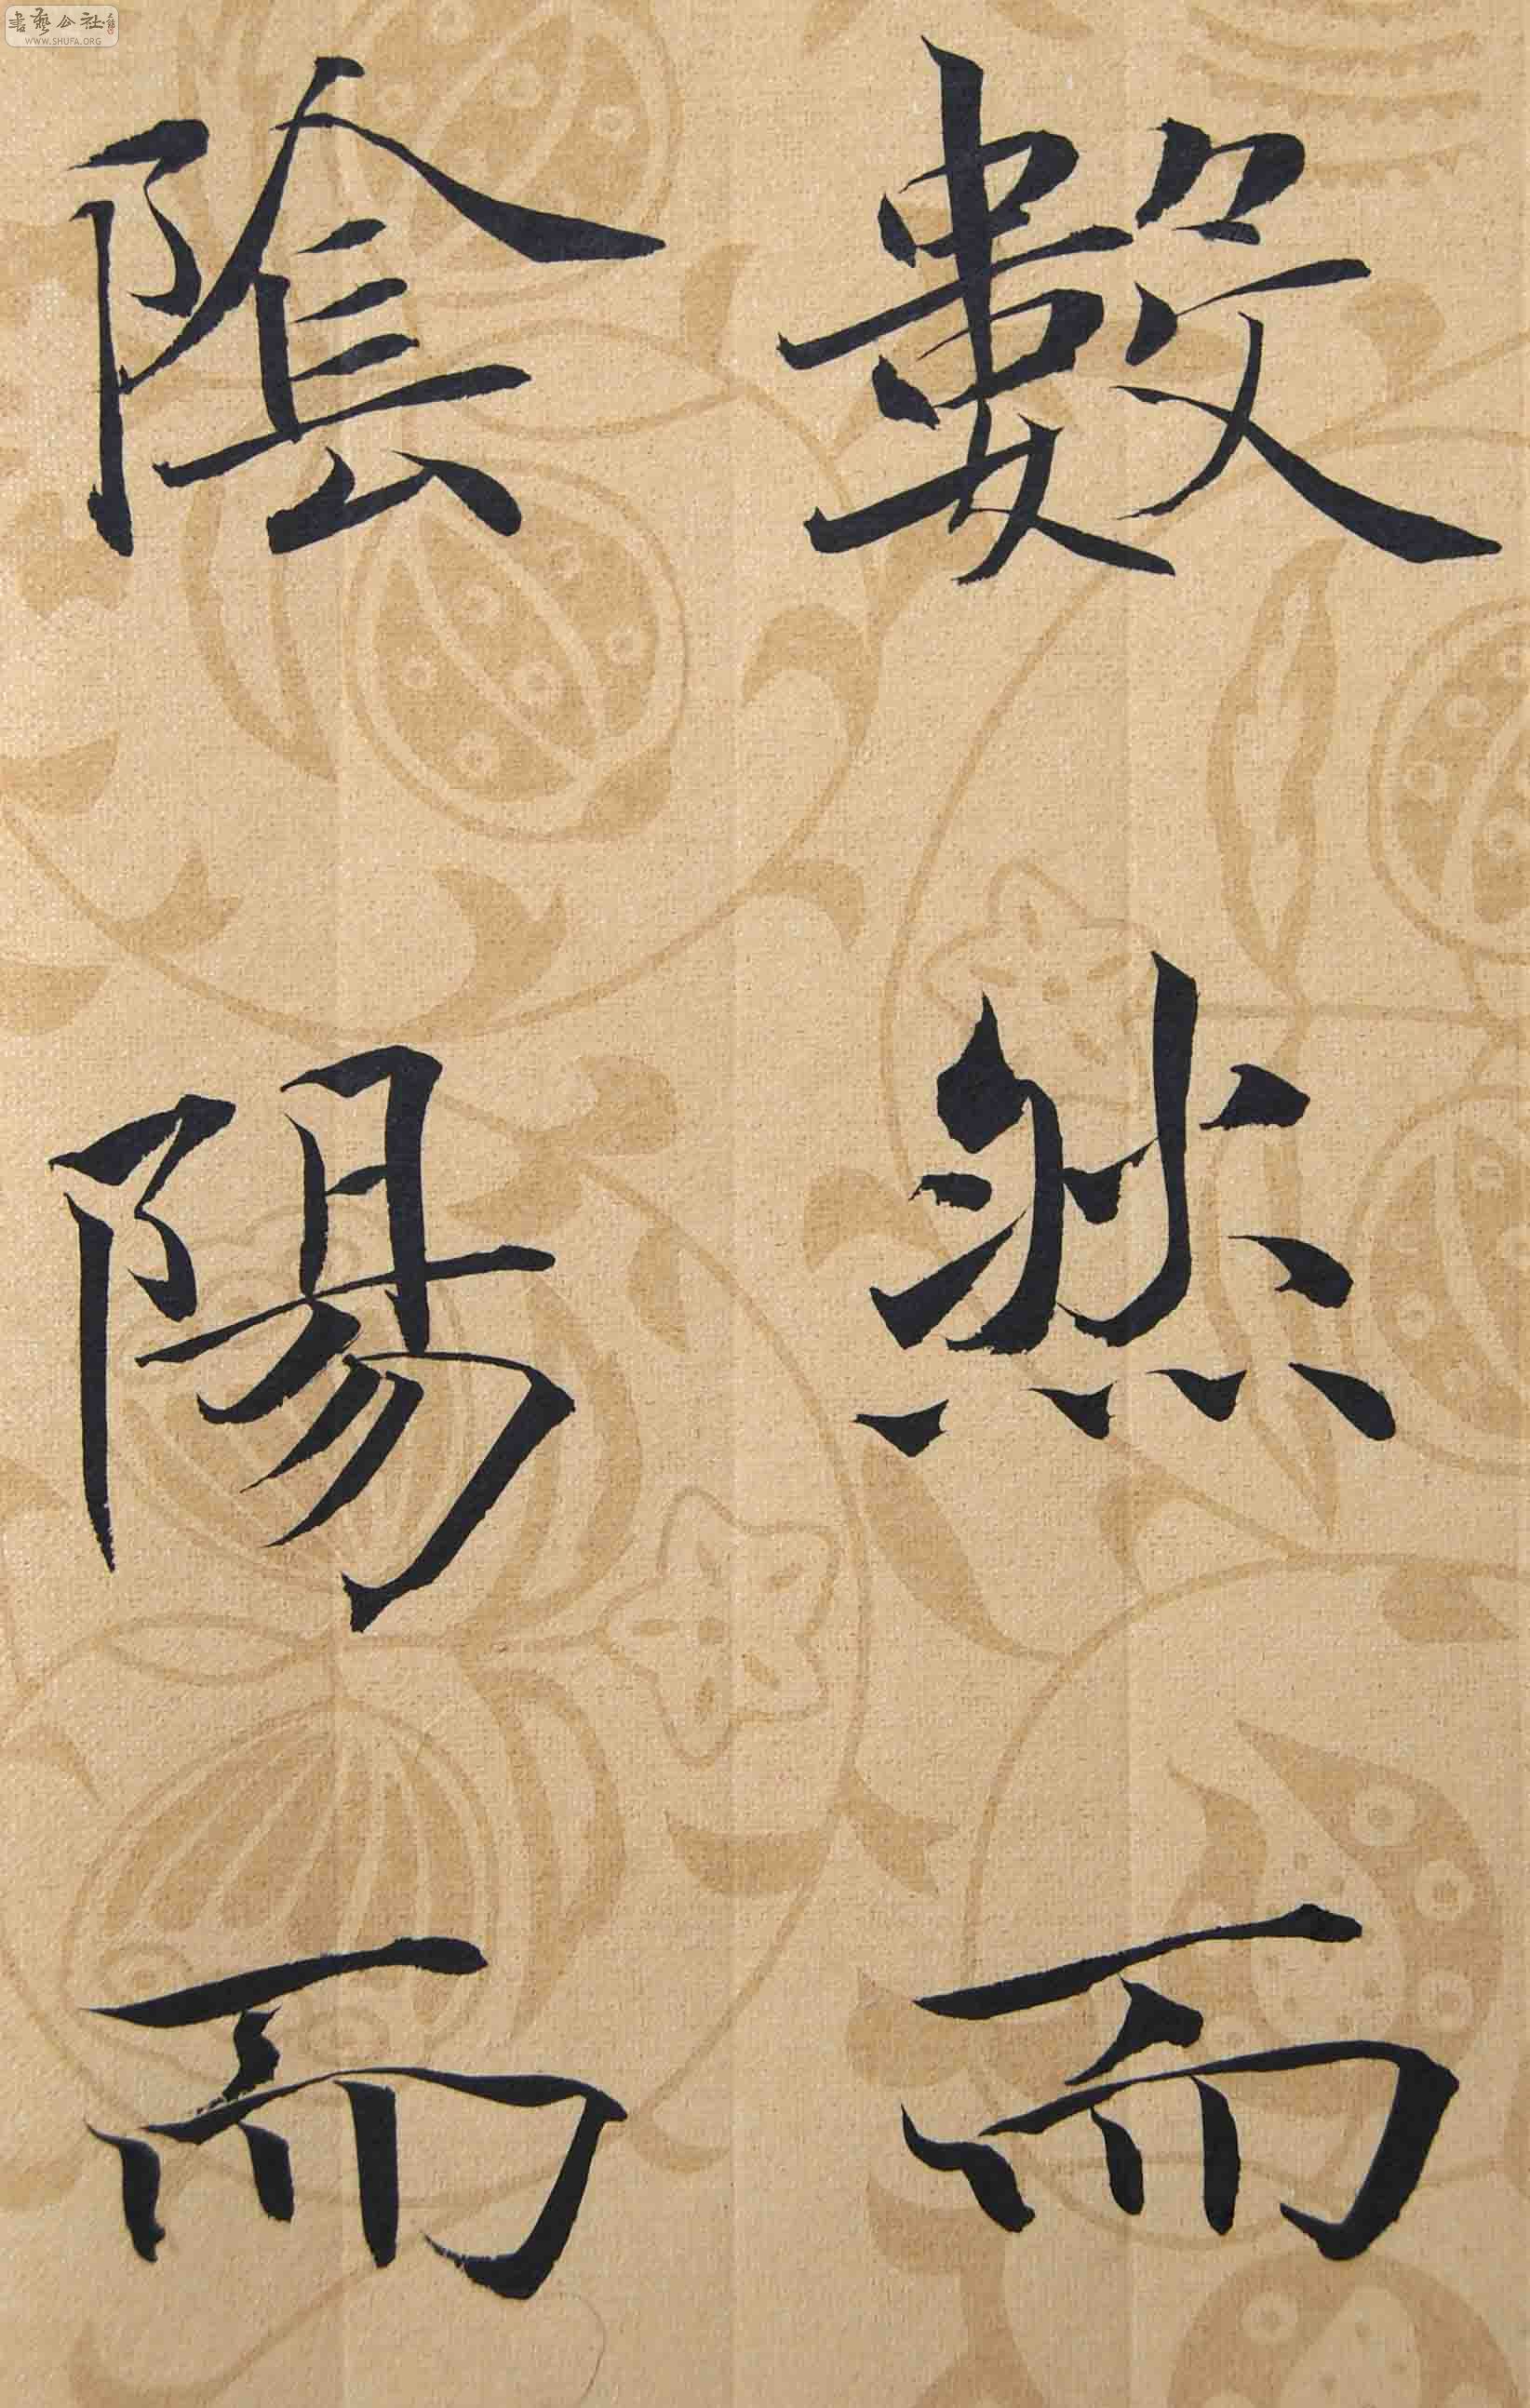 數然而
陰陽而
書藝公社
WWW.SHUFA.ORG